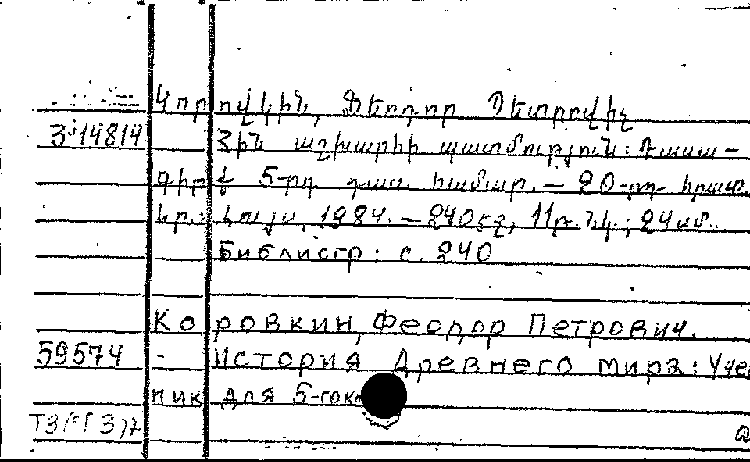 Կորովկին, Ֆեոդոր Պետրովիչ
3-14814 Հին աշխարհի պատմություն: Դասա-
գիրք 5-րդ դաս. համար. - 20-րդ հրատ.
Եր.: Լույս, 1984. - 240 էջ, 11 թ. նկ.; 24 սմ.
Библиогр: с. 240
Коровкин, Феодор Петрович.
59574 - История Древнего мира: Учеб
ник для 5-го